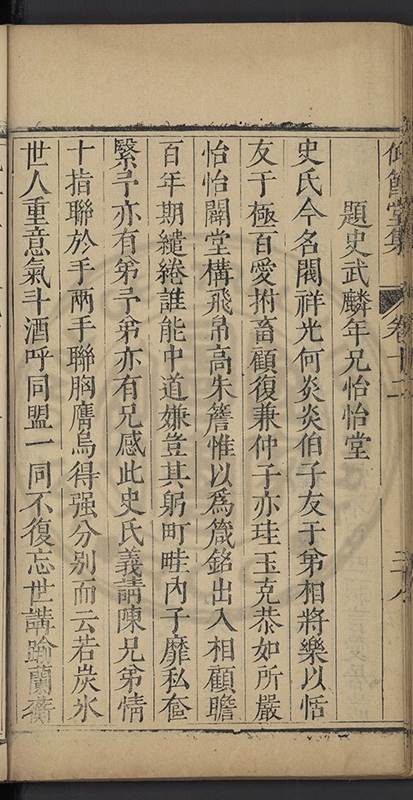 仰節堂集 卷十二
題史武麟年兄怡怡堂
史氏今名閥祥光何炎炎伯子友于弟相將樂以恬
友于極百愛拊畜顧復兼仲子亦珪玉克恭如所嚴
怡怡闢堂構飛帛高朱簷惟以為箴銘出入相顧瞻
百年期繾綣誰能中道嫌豈其躬町畦內子靡私奩
繄予亦有弟予弟亦有兄感此史氏義請陳兄弟情
十指聯於手兩手聯胸膺烏得强分別而云若炭氷
世人重意氣斗酒呼同盟一同不復忘世講踰蘭蘅